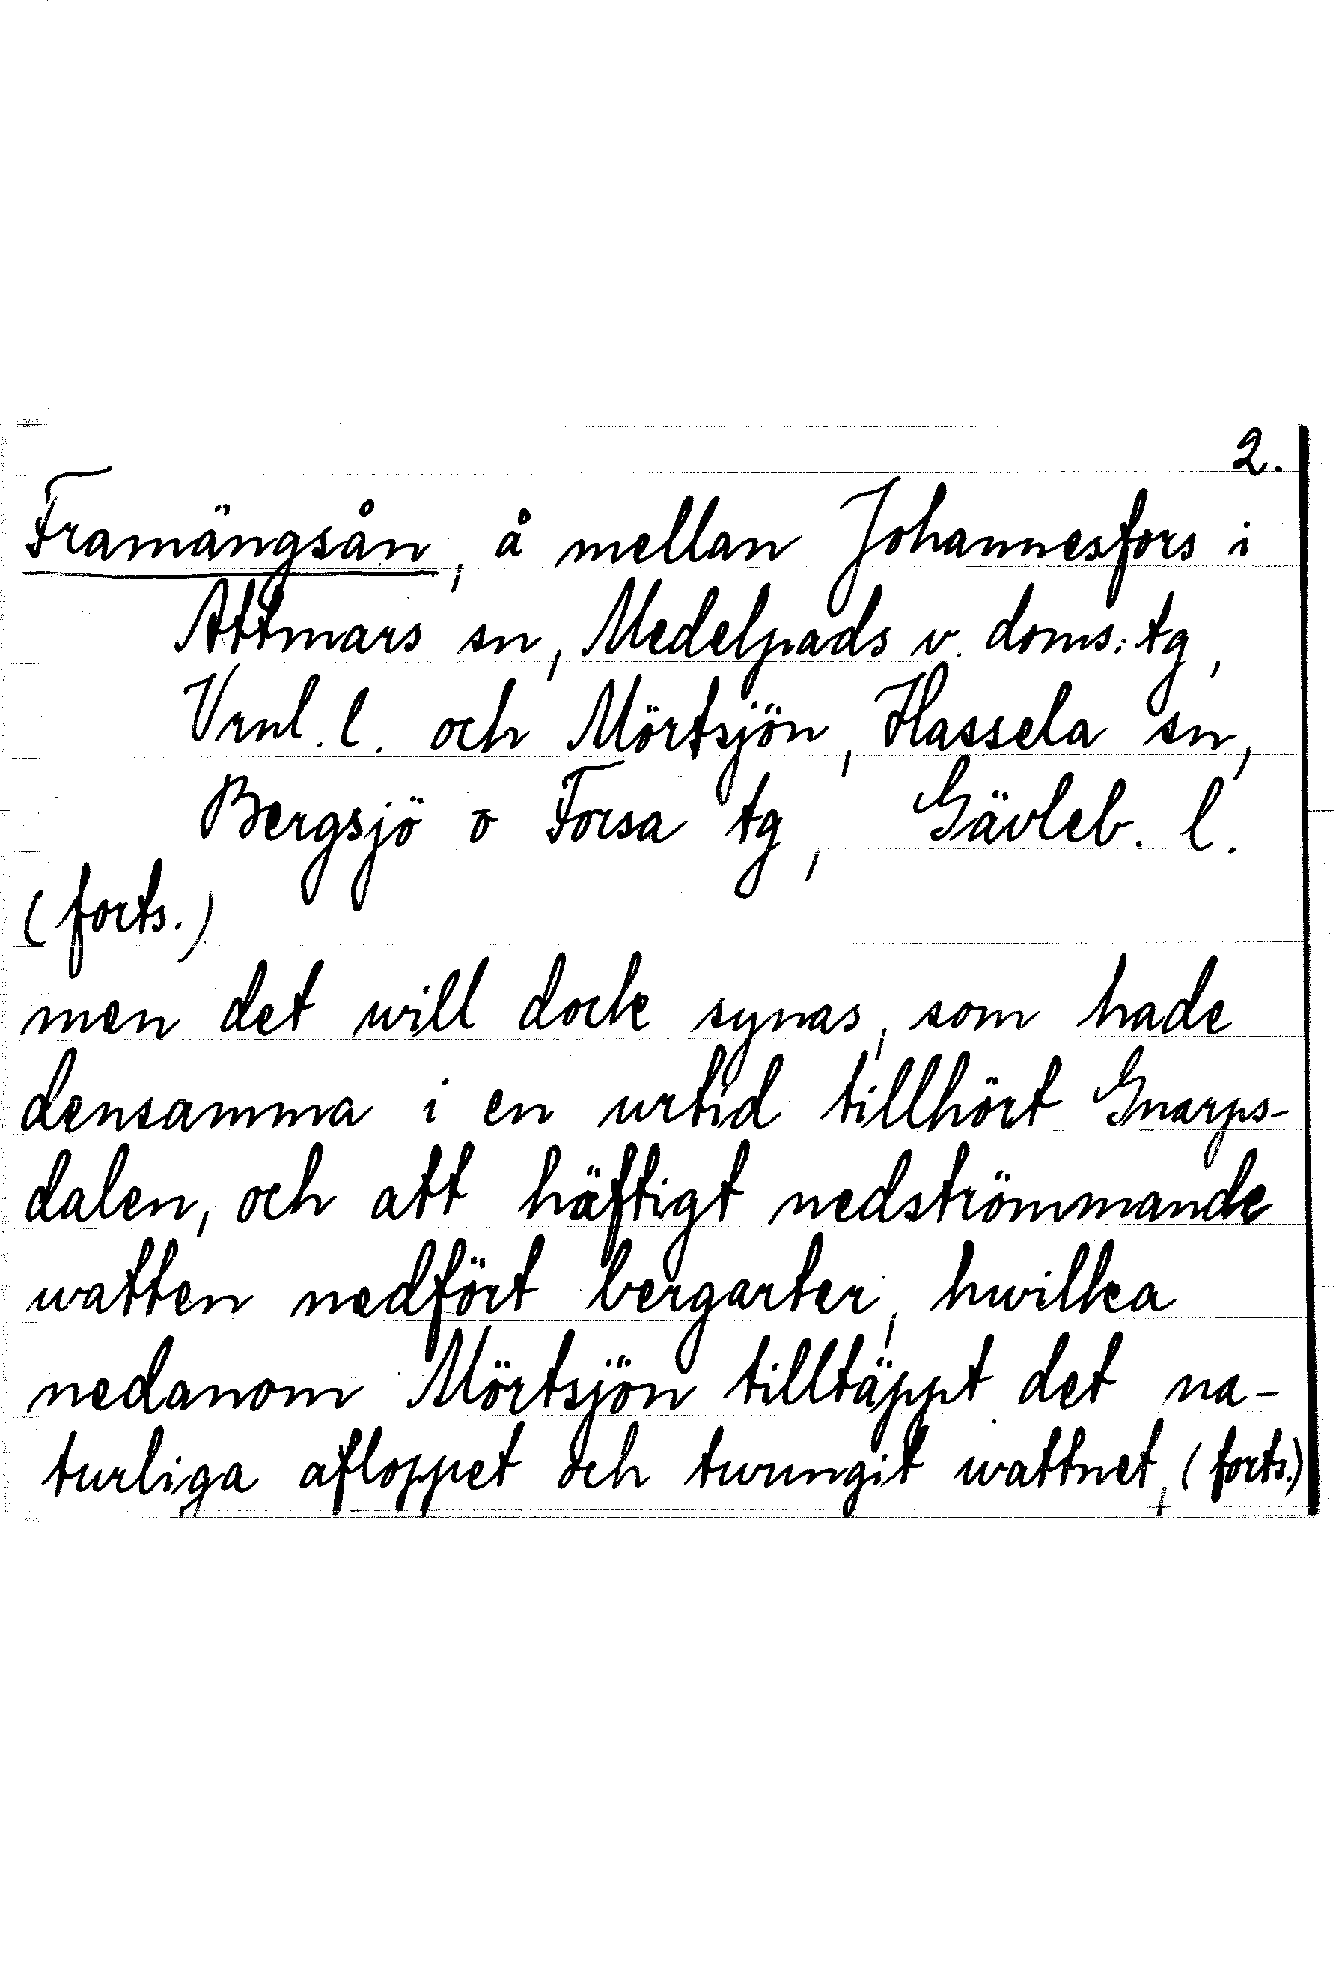 2.
Framängsån, å mellan Johannesfors i
Attmars sn, Medelpads v. doms:tg,
Vrnl. l. och Mörtsjön, Hassela sn,
Bergsjö o Forsa tg, Gävleb. l.
(forts.)
men det will dock synas, som hade
densamma i en urtid tillhört Gnarps-
dalen, och att häftigt nedströmmande
watten nedfört bergarter, hwilka
nedanom Mörtsjön tilltäppt det na-
turliga afloppet och twungit wattnet, (forts.)